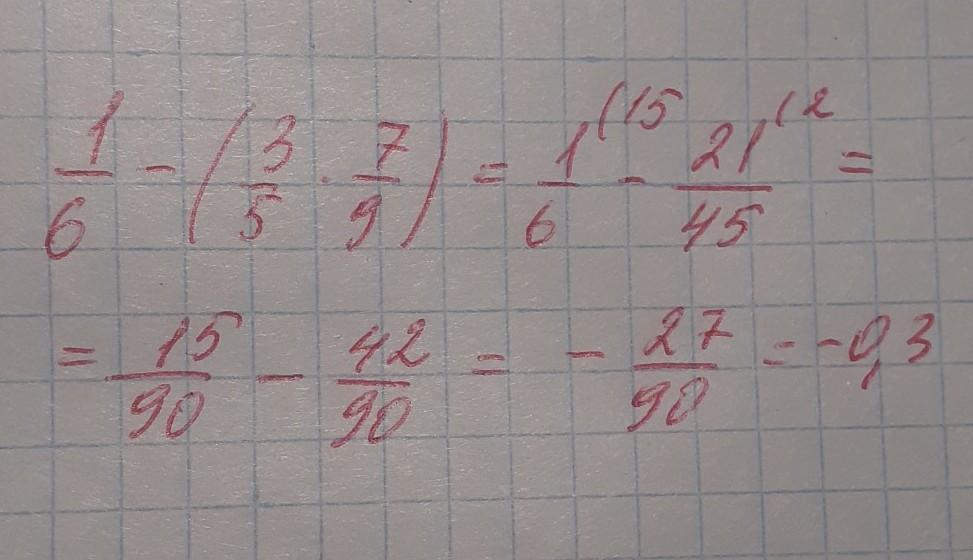 1/6 - (3/5 · 7/9) = 1/6 (15 - 21/45 (2 =
= 15/90 - 42/90 = - 27/90 = -0,3